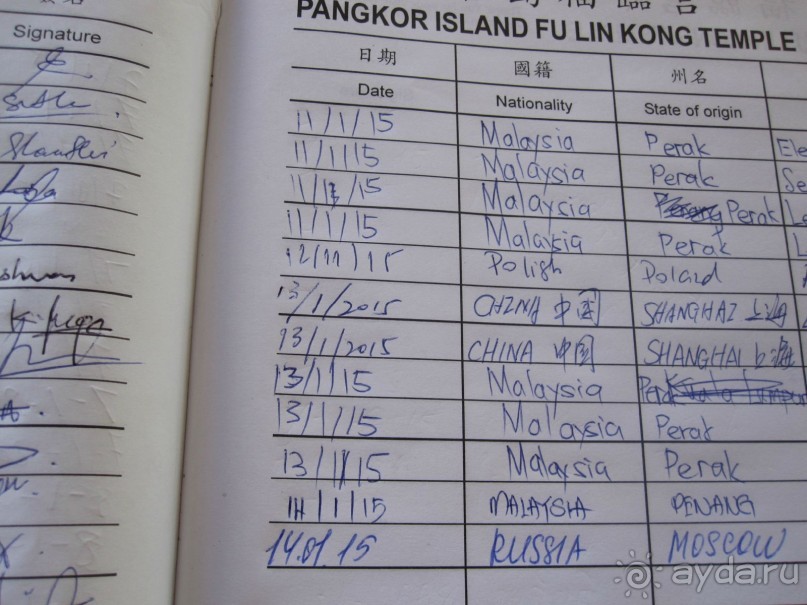 Signature
PANGKOR ISLAND FU LIN KONG TEMPLE
日期 國籍 州名
Date Nationality State of origin
11/1/15 Malaysia Perak Ele
11/1/15 Malaysia Perak Se
11/1/15 Malaysia Perak
11/1/15 Malaysia Perak L
12/11/15 Polish Polard
13/1/2015 CHINA 中国 SHANGHAI 上海
13/1/2015 CHINA 中国 SHANGHAI 上海
13/1/15 Malaysia Perak
13/1/15 Malaysia Perak
13/1/15 Malaysia Perak
14/1/15 MALAYSIA PENANG
14.01.15 RUSSIA MOSCOW
ayda.ru